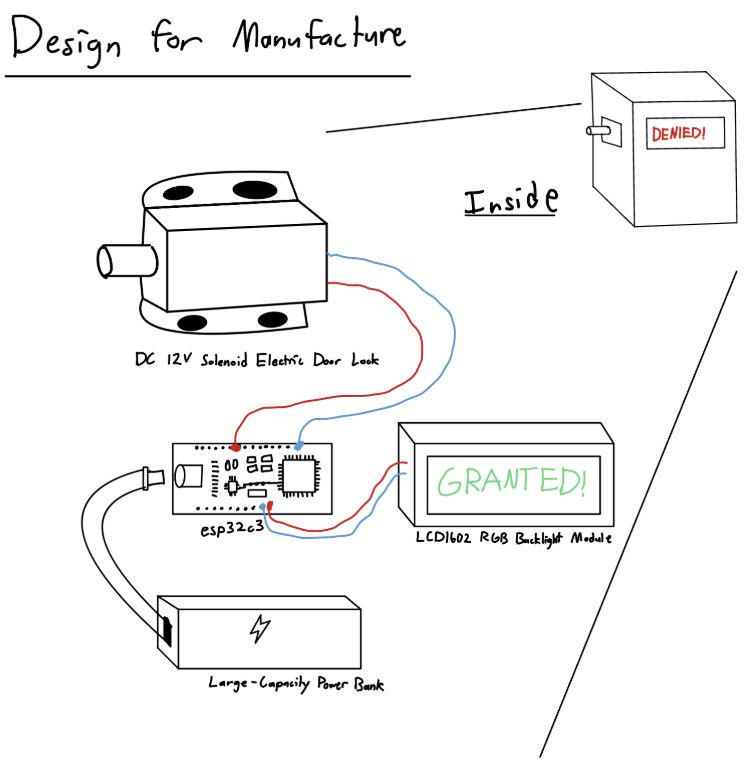 Design for Manufacture
DENIED!
Inside
DC 12V Solenoid Electric Door Lock
GRANTED!
esp32c3
LCD1602 RGB Backlight Module
Large-Capacity Power Bank